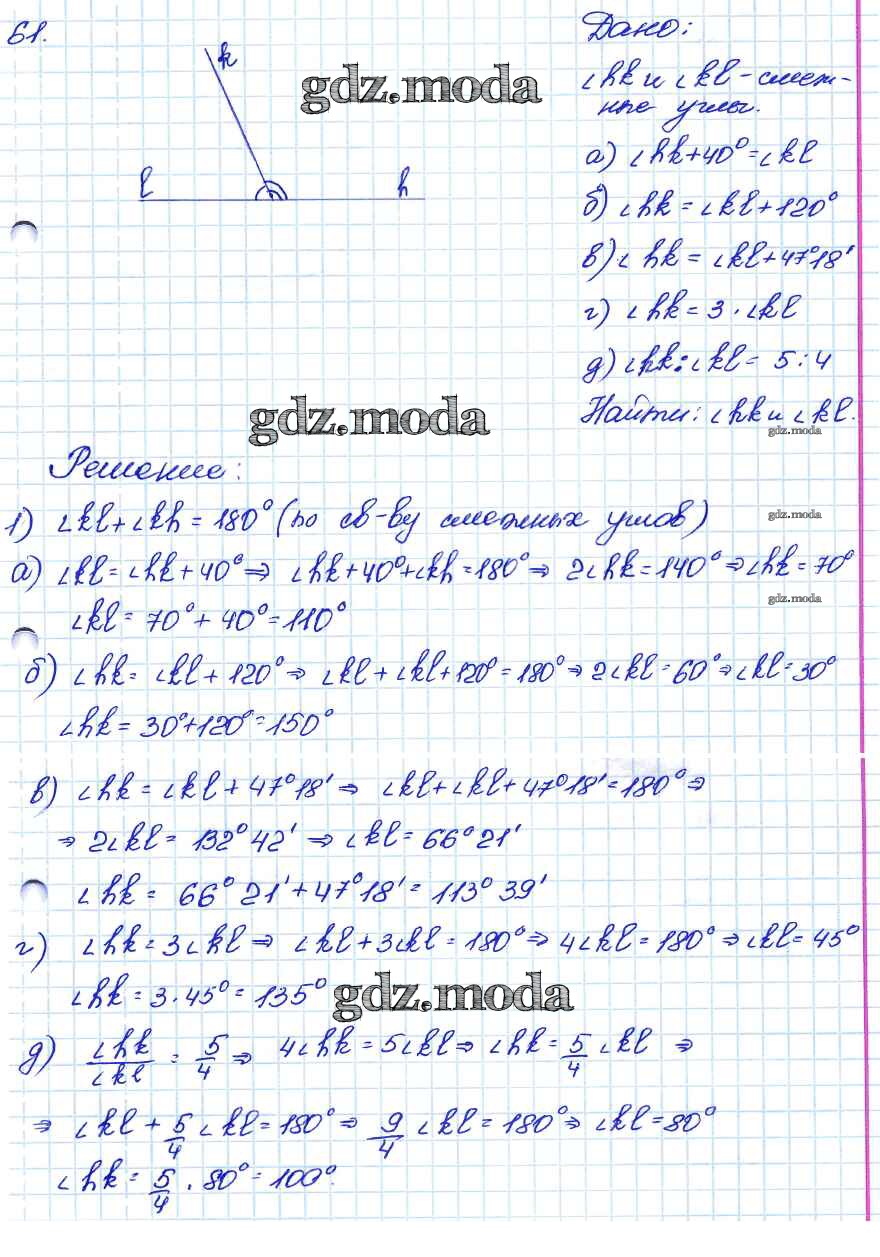 61.
k
l
h
gdz.moda
Дано:
∠hk и ∠kl - смеж-
ные углы.
а) ∠hk+40°=∠kl
б) ∠hk = ∠kl+120°
в) ∠hk = ∠kl+47°18'
г) ∠hk = 3 · ∠kl
д) ∠hk : ∠kl = 5 : 4
Найти: ∠hk и ∠kl.
gdz.moda
gdz.moda
Решение:
1) ∠kl+∠kh = 180° (по св-ву смежных углов)
gdz.moda
а) ∠kl = ∠hk + 40° ⇒ ∠hk + 40°+∠kh = 180° ⇒ 2∠hk = 140° ⇒ ∠hk = 70°
gdz.moda
∠kl = 70° + 40° = 110°
б) ∠hk = ∠kl + 120° ⇒ ∠kl + ∠kl + 120° = 180° ⇒ 2∠kl = 60° ⇒ ∠kl = 30°
∠hk = 30°+120° = 150°
в) ∠hk = ∠kl + 47°18' ⇒ ∠kl+∠kl+47°18' = 180° ⇒
⇒ 2∠kl = 132°42' ⇒ ∠kl = 66°21'
∠hk = 66°21' + 47°18' = 113°39'
г) ∠hk = 3∠kl ⇒ ∠kl + 3∠kl = 180° ⇒ 4∠kl = 180° ⇒ ∠kl = 45°
∠hk = 3 · 45° = 135°
gdz.moda
д) ∠hk/∠kl = 5/4 ⇒ 4∠hk = 5∠kl ⇒ ∠hk = 5/4 ∠kl ⇒
⇒ ∠kl + 5/4 ∠kl = 180° ⇒ 9/4 ∠kl = 180° ⇒ ∠kl = 80°
∠hk = 5/4 · 80° = 100°.